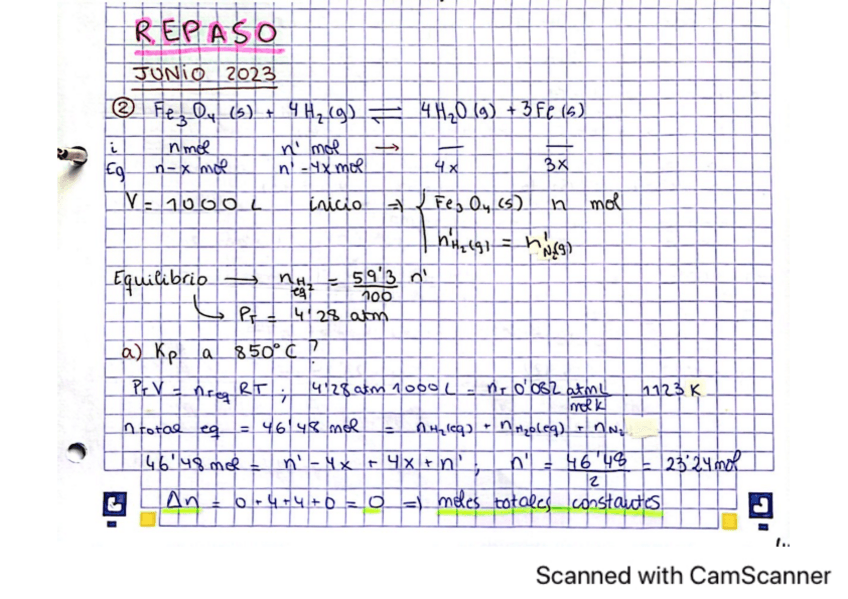 REPASO
JUNIO 2023
② Fe₃O₄ (s) + 4H₂ (g) ⇌ 4H₂O (g) + 3Fe (s)
i n mol n' mol → — —
Eq n-x mol n'-4x mol 4x 3x
V = 1000 L inicio ⇒ { Fe₃O₄ (s) n mol
n'H₂(g) = n'N₂(g)
Equilibrio → nH₂ eq = 59'3/100 n'
↳ PT = 4'28 atm
a) Kp a 850°C ?
PT V = nT eq RT ; 4'28 atm 1000 L = nT 0'082 atm L/mol K . 1123 K
n Total eq = 46'48 mol = nH₂(eq) + nH₂O(eq) + nN₂
46'48 mol = n' - 4x + 4x + n' ; n' = 46'48/2 = 23'24 mol
Δn = 0 - 4 + 4 + 0 = 0 ⇒ moles totales constantes
Scanned with CamScanner